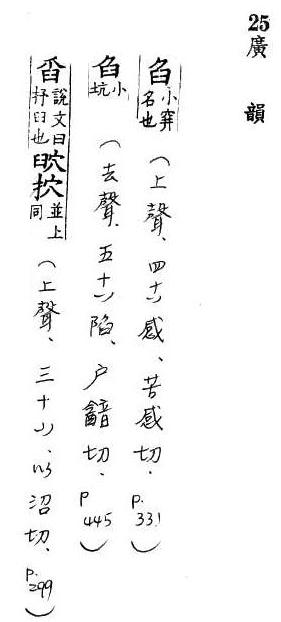 25 廣韻
臽小穽名也(上聲、四十八感、苦感切. P.331)
臽小坑(去聲、五十八陷、戶韽切. P445)
舀說文曰抒臼也抭並上同(上聲、三十小、以沼切、P.299)